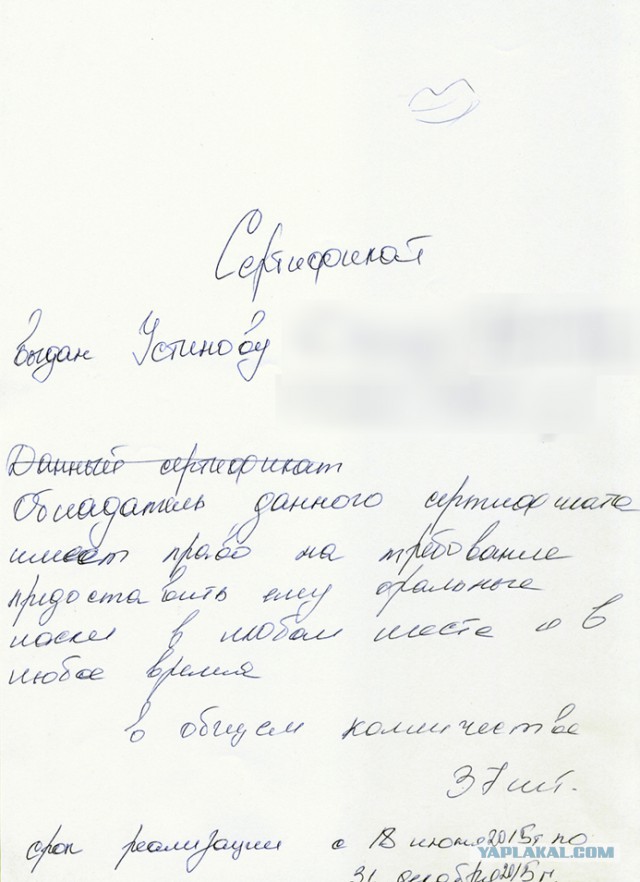 Сертификат
Выдан Устинову
Данный сертификат
Обладатель данного сертификата
имеет право на требование
предоставить ему оральные
ласки в любом месте и в
любое время
в общем колличестве
37 шт.
срок реализации с 18 июля 2015г по
31 декабря 2015 г.
YAPLAKAL.COM